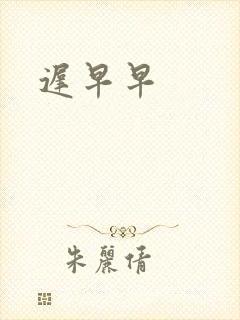 遲早早
朱麗倩